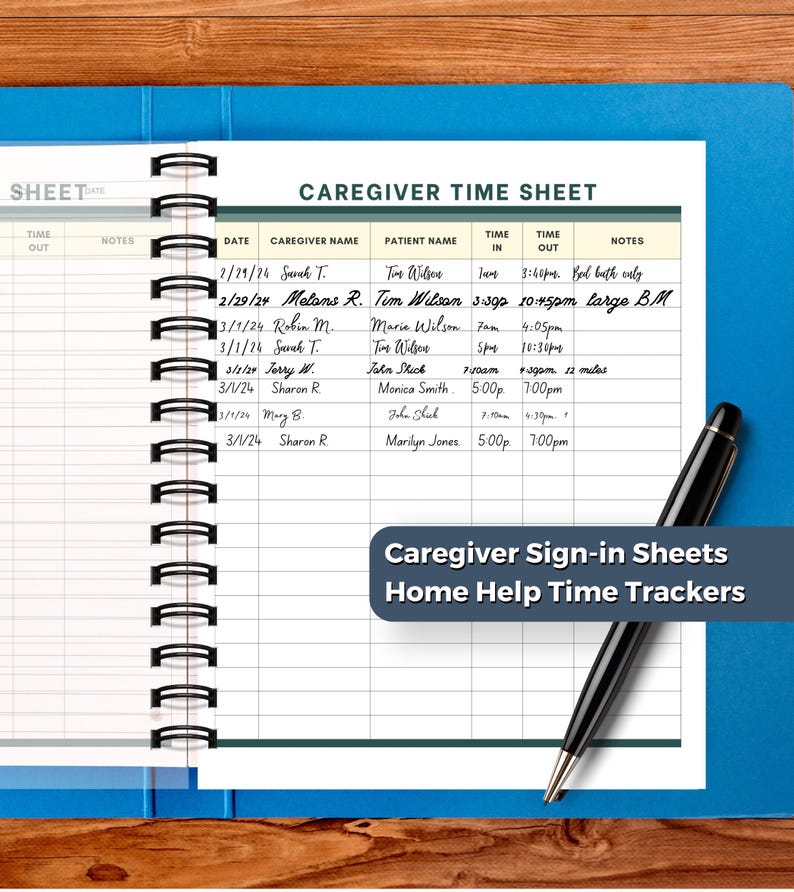 SHEET DATE:
TIME OUT NOTES
CAREGIVER TIME SHEET
DATE CAREGIVER NAME PATIENT NAME TIME IN TIME OUT NOTES
2/29/24 Sarah T. Tim Wilson 7am 3:40pm. Bed bath only
2/29/24 Melons R. Tim Wilson 3:30p 10:45pm large BM
3/1/24 Robin M. Marie Wilson 7am 4:05pm
3/1/24 Sarah T. Tim Wilson 5pm 10:30pm
3/1/24 Jerry W. John Shick 7:10am 4:30pm. 12 miles
3/1/24 Sharon R. Monica Smith . 5:00p. 7:00pm
3/1/24 Mary B. John Shick 7:10am 4:30pm. 1
3/1/24 Sharon R. Marilyn Jones. 5:00p. 7:00pm
Caregiver Sign-in Sheets
Home Help Time Trackers